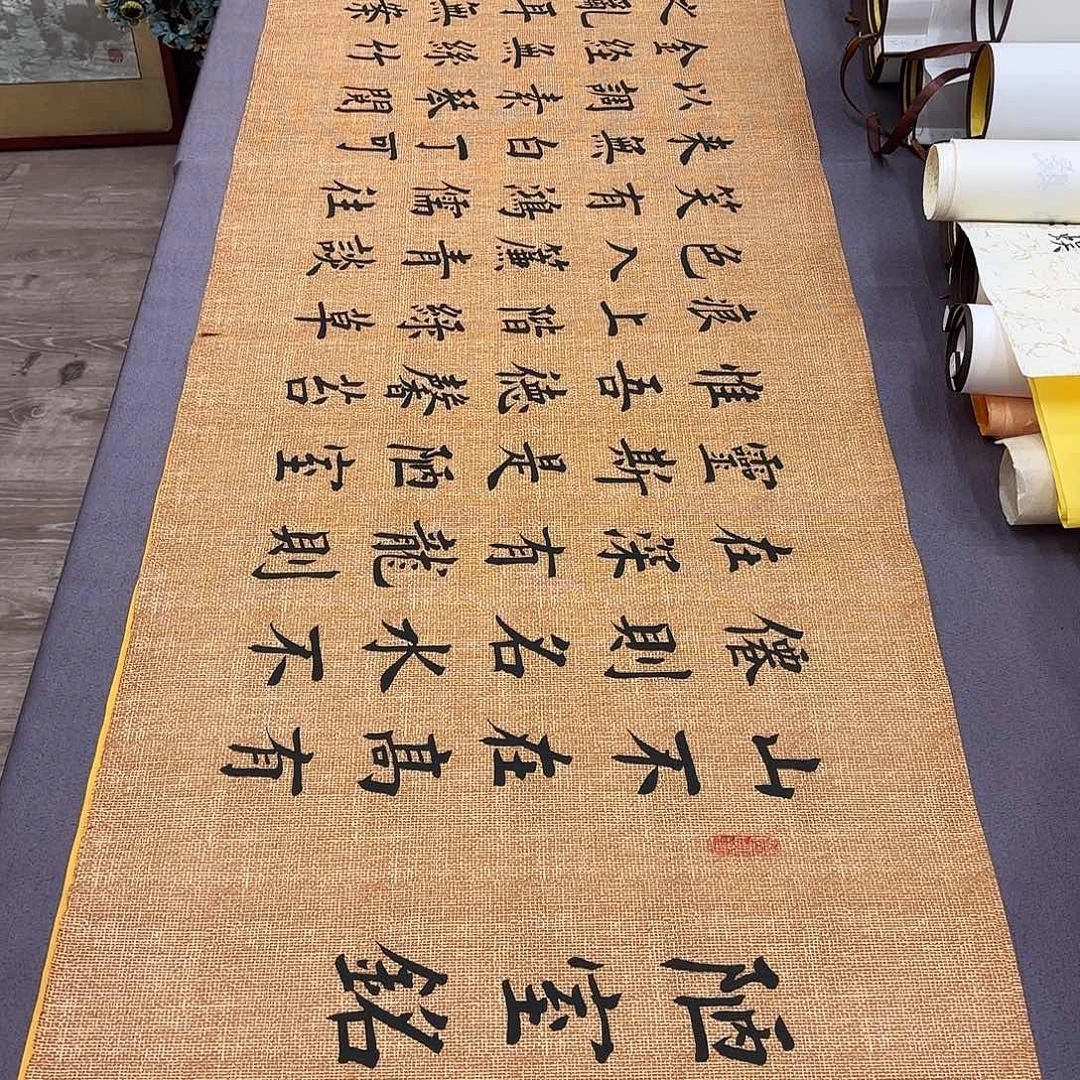 陋室銘
山不在髙有
僊則名水不
在深有龍則
靈斯是陋室
惟吾德馨苔
痕上階綠草
色入簾青談
笑有鴻儒往
来無白丁可
以調素琴閱
金經無絲竹
之亂耳無案